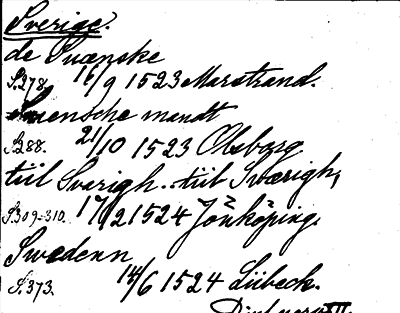 Sverige.
de Suænske
S.278. 16/9 1523 Marstrand.
Suensche mandt
S.288. 21/10 1523 Olsborg.
tiil Suerigh. tiil Swærigh,
S.309-310. 17/2 1524 Jönköping.
Swedenn
S.373. 14/6 1524 Lübeck.